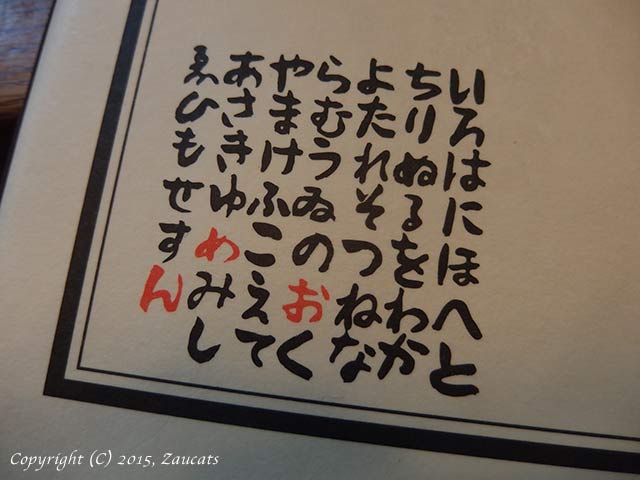 いろはにほへと
ちりぬるをわか
よたれそつねな
らむうゐのおく
やまけふこえて
あさきゆめみし
ゑひもせすん
Copyright (C) 2015, Zaucats